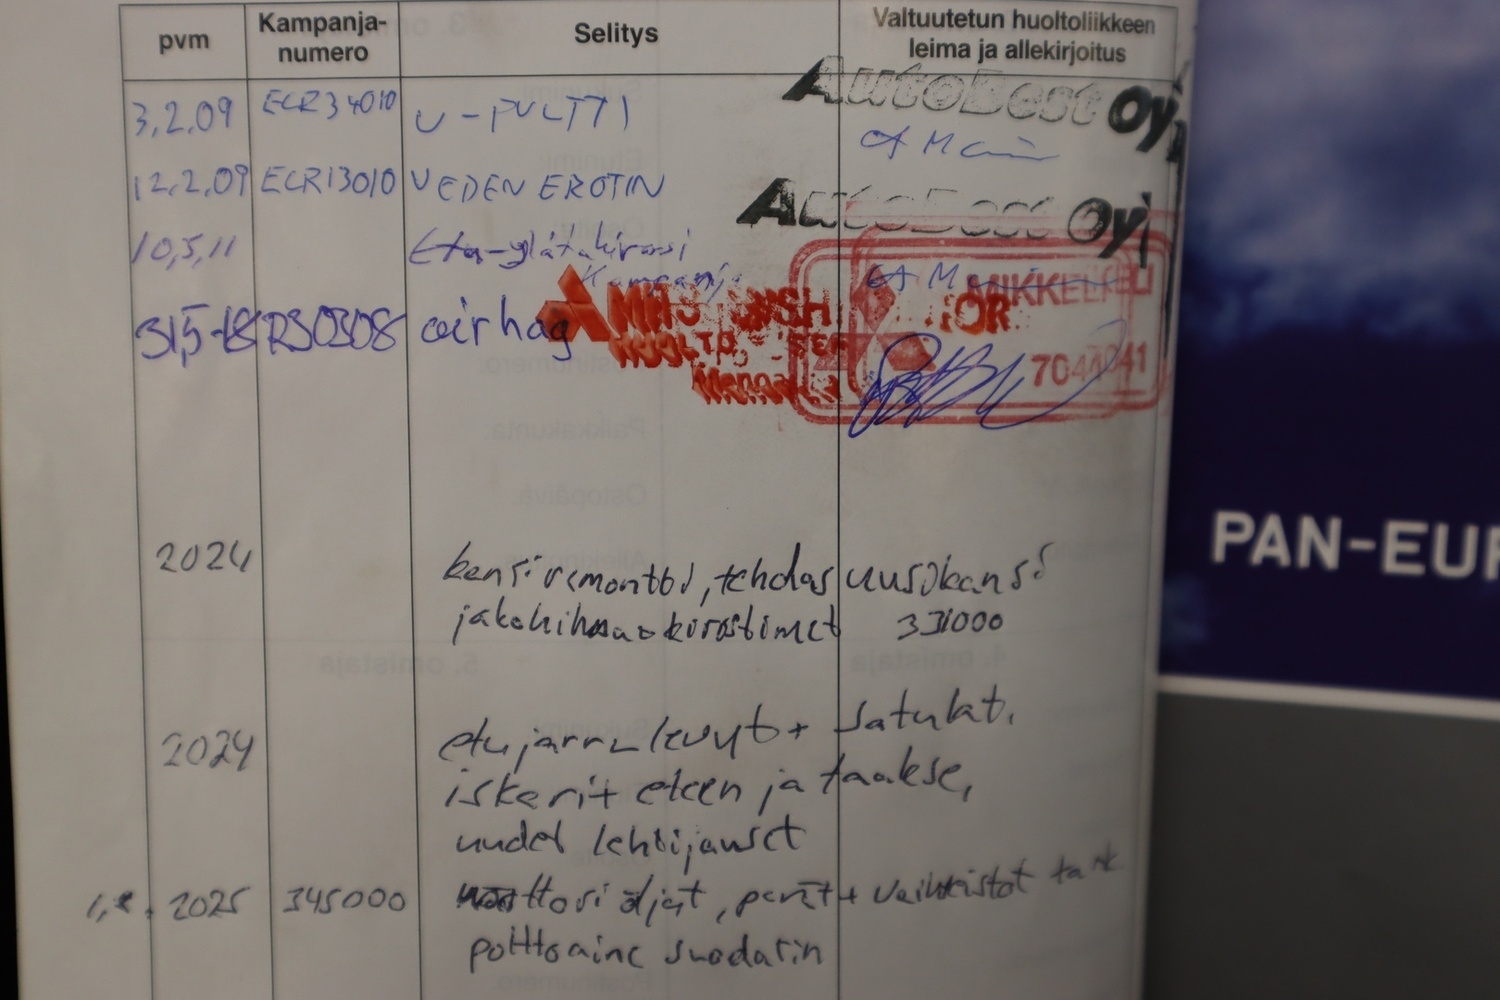 pvm Kampanja- numero Selitys Valtuutetun huoltoliikkeen leima ja allekirjoitus
3.2.09 ECR34010 U-PULTTI AutoBest Oy
12.2.09 ECR13010 VEDEN EROTIN AutoBest Oy
10,5,11 Eta-ylätukivarsi
Kampanja
31,5-18 R30308 airbag
MIKKELI
7044041
2024 konsiremontti, tehdas uusi kansi
331000
2024 etujarrulevyt + satulat,
iskarit eteen ja taakse,
uudet lehtijouset
1,8. 2025 345000 moottori öljat, perät + vaihteistot tark.
polttoaine suodatin
PAN-EUR